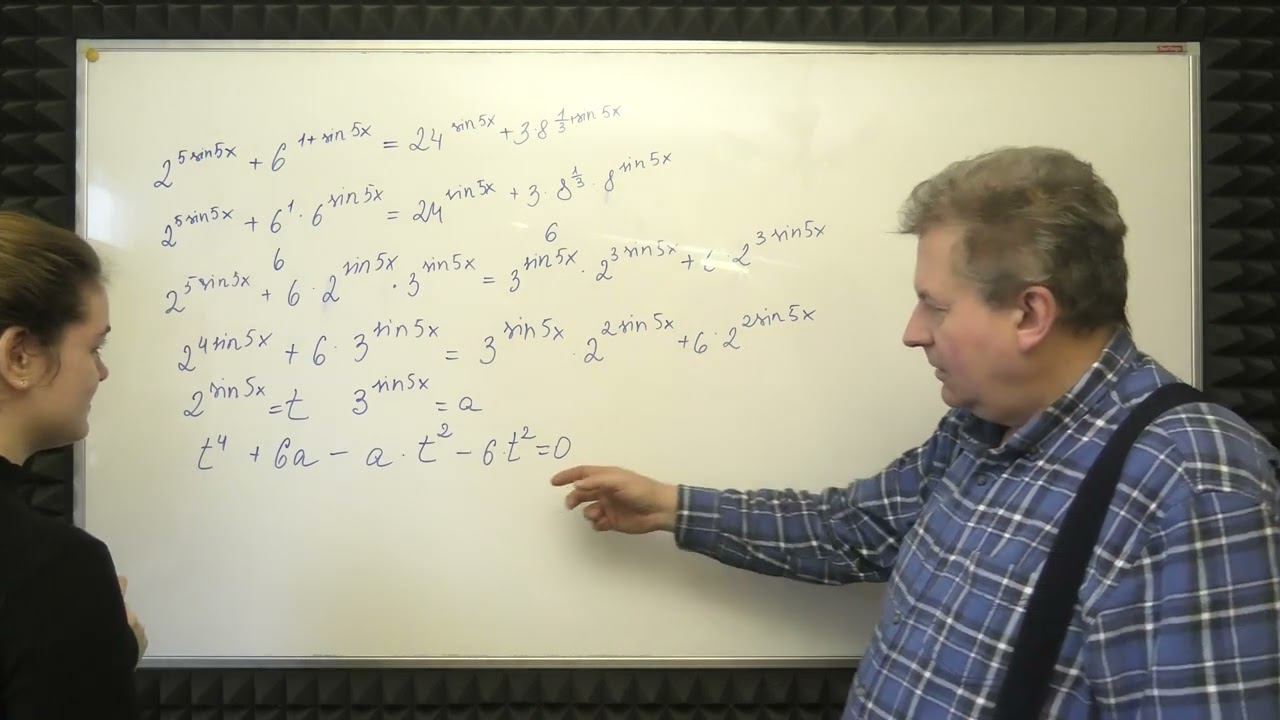 2^{5 sin5x} + 6^{1+sin5x} = 24^{sin5x} + 3·8^{\frac{1}{3}+sin5x}
2^{5 sin5x} + 6^1 · 6^{sin5x} = 24^{sin5x} + 3 · 8^{\frac{1}{3}} · 8^{sin5x}
6 6
2^{5 sin5x} + 6 · 2^{sin5x} · 3^{sin5x} = 3^{sin5x} · 2^{3 sin5x} + · 2^{3 sin5x}
2^{4 sin5x} + 6 · 3^{sin5x} = 3^{sin5x} · 2^{2 sin5x} + 6 · 2^{2 sin5x}
2^{sin5x} = t 3^{sin5x} = a
t^4 + 6a − a · t^2 − 6 · t^2 = 0